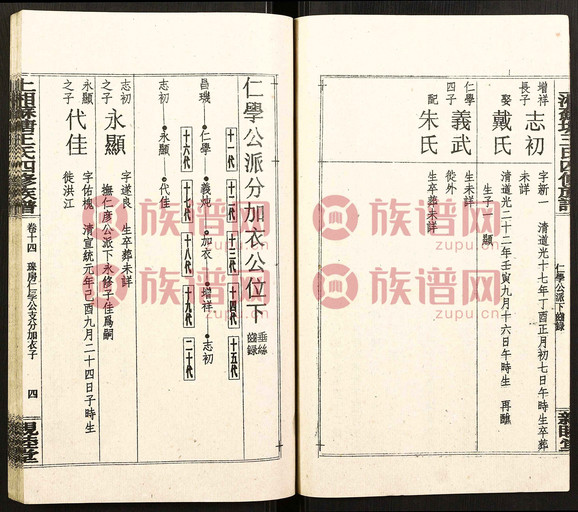 增祥
長子
志初
字新一 清道光十七年丁酉正月初七日午時生卒葬
未詳
娶
戴氏
清道光二十二年壬寅九月十六日午時生 再醮
生子一 顯
仁學
四子
義武
生未詳
徙外
配
朱氏
生卒葬未詳
仁學公派下齒錄
仁學公派分加衣公位下
垂絲
齒錄
十一代 十二代 十三代 十四代 十五代
昌璣 仁學 義炖 加衣 增祥 志初
十六代 十七代 十八代 十九代 二十代
志初 永顯 代佳
志初
之子
永顯
字遂良 生卒葬未詳
撫仁彦公派下永修子佳爲嗣
永顯
之子
代佳
字佑槐 清宣統元年己酉九月二十四日子時生
徙洪江
卷十四 璣房仁學公支分加衣子 四
族谱网
zupu.cn